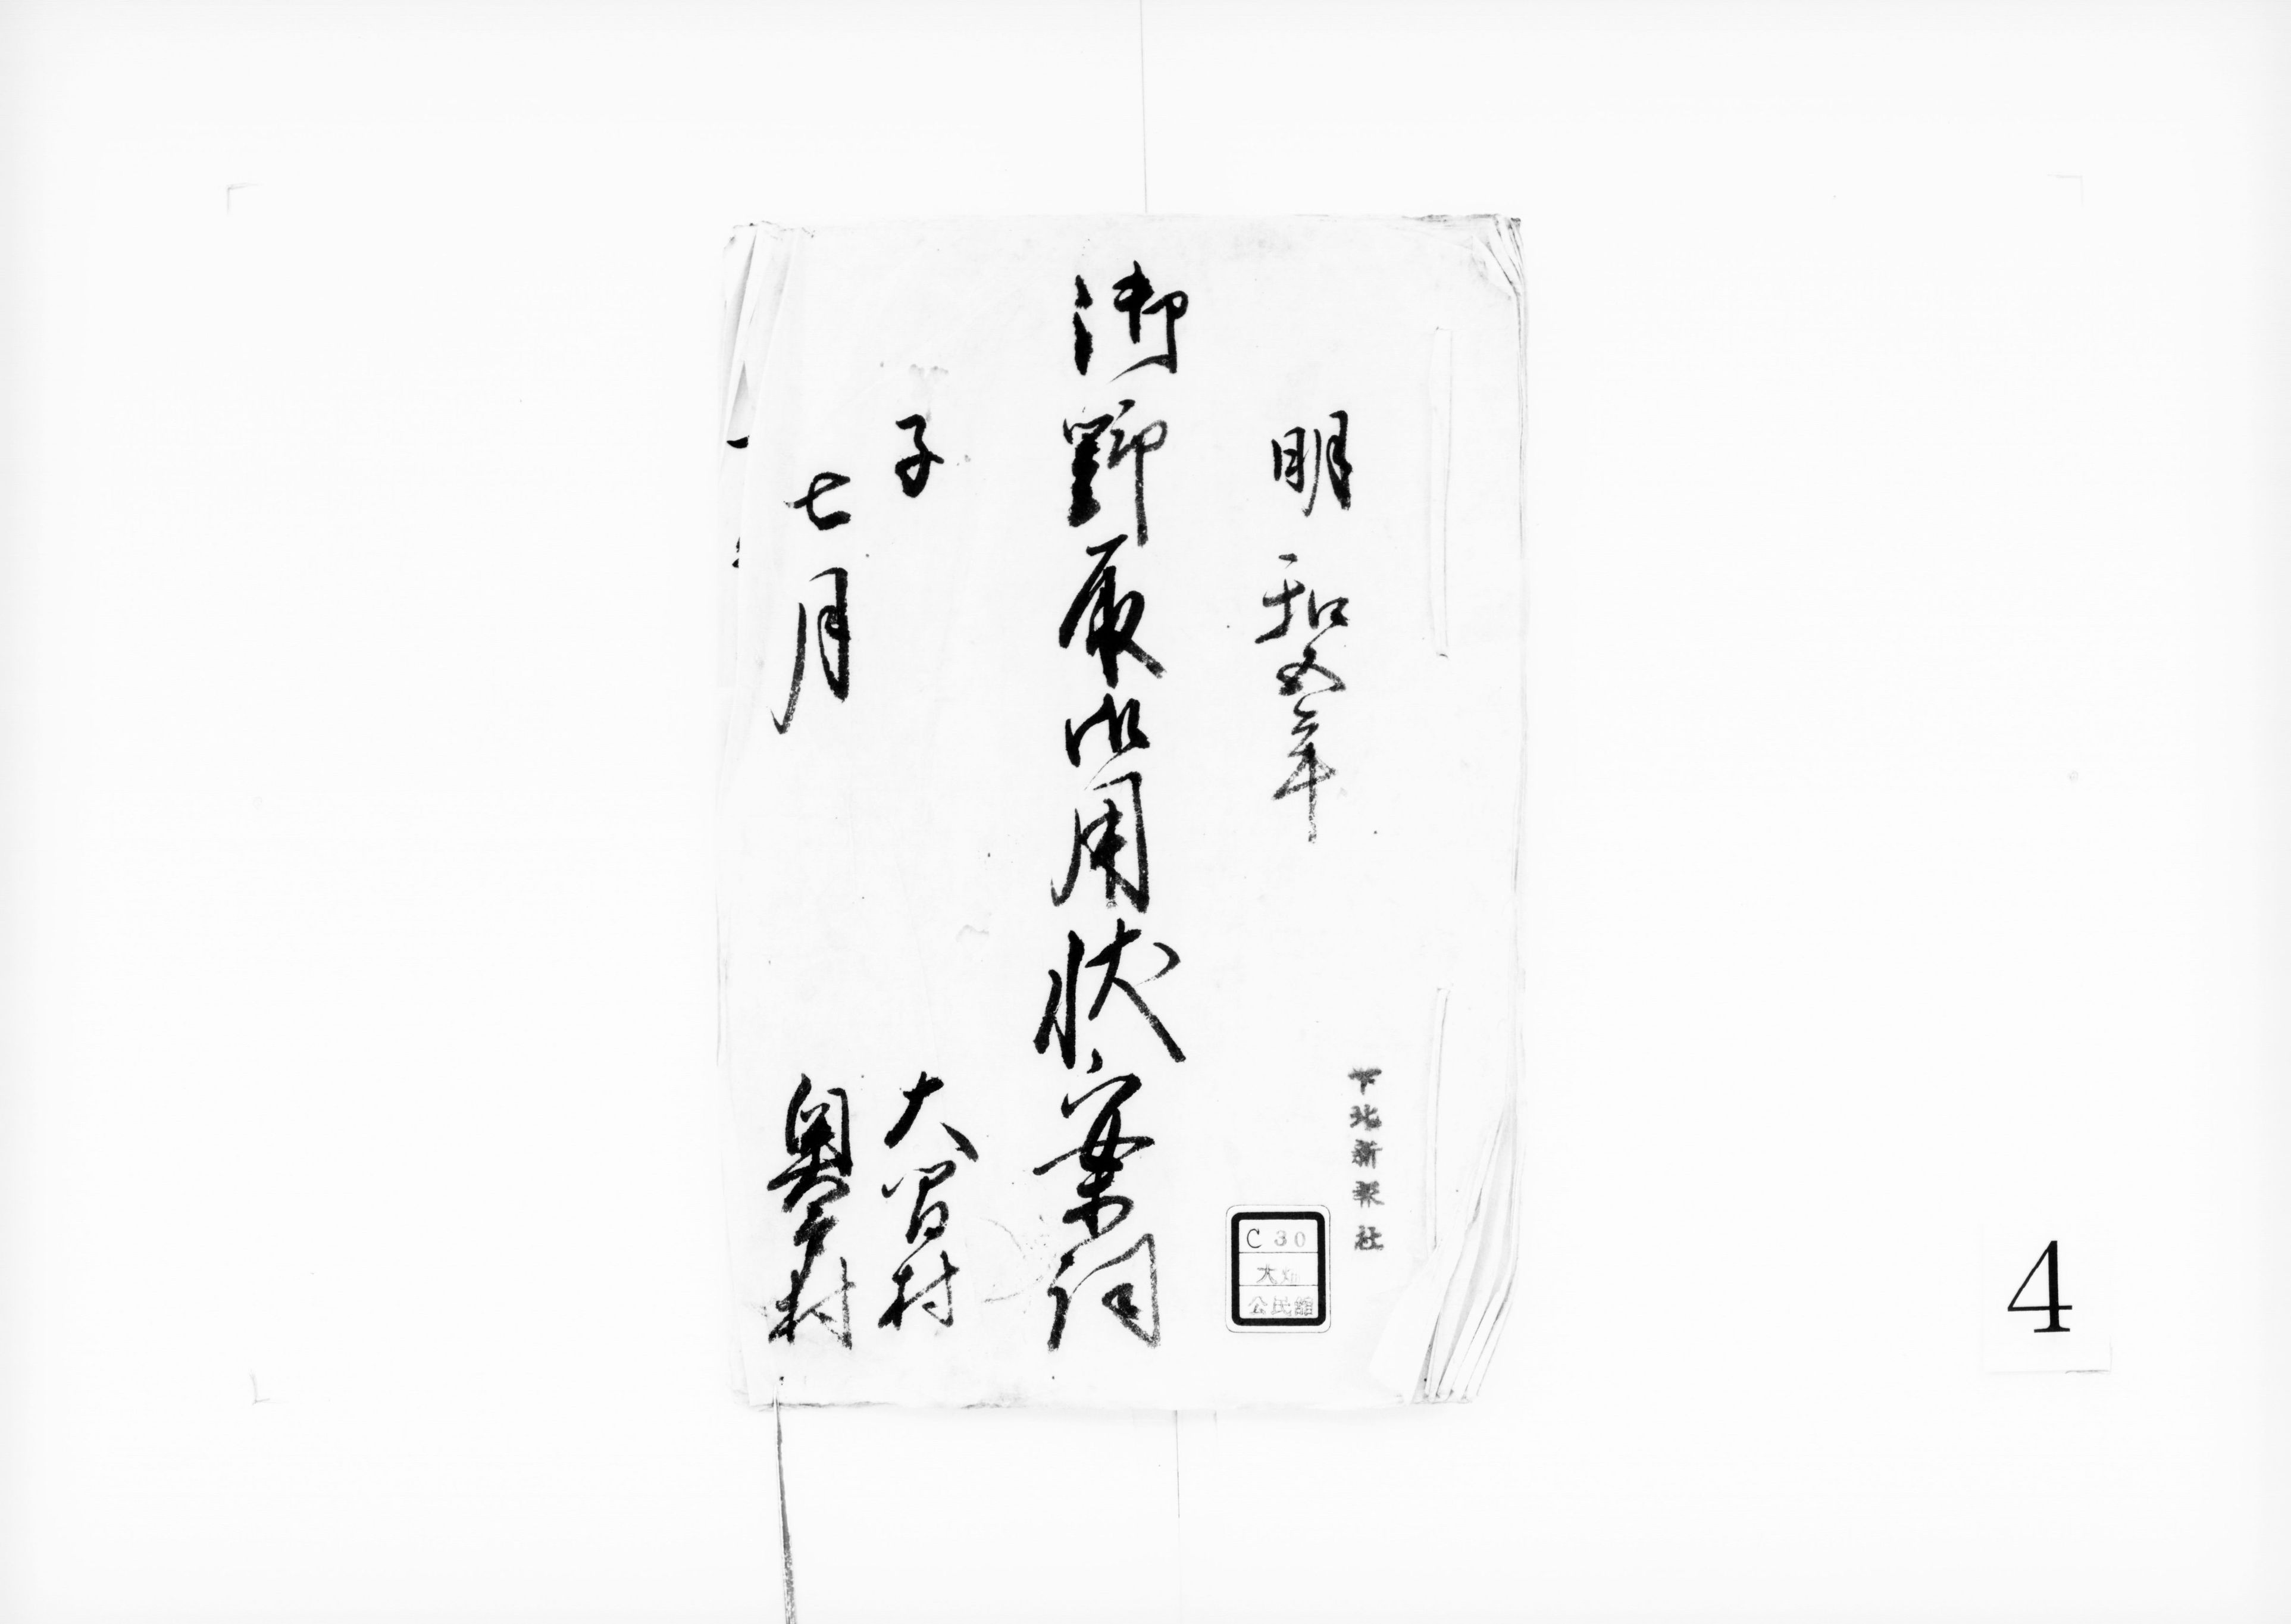 明和五年
下北新報社
C 30
大畑
公民館
御野取御用状案詞
子
七月
大間村
奥戸村
4